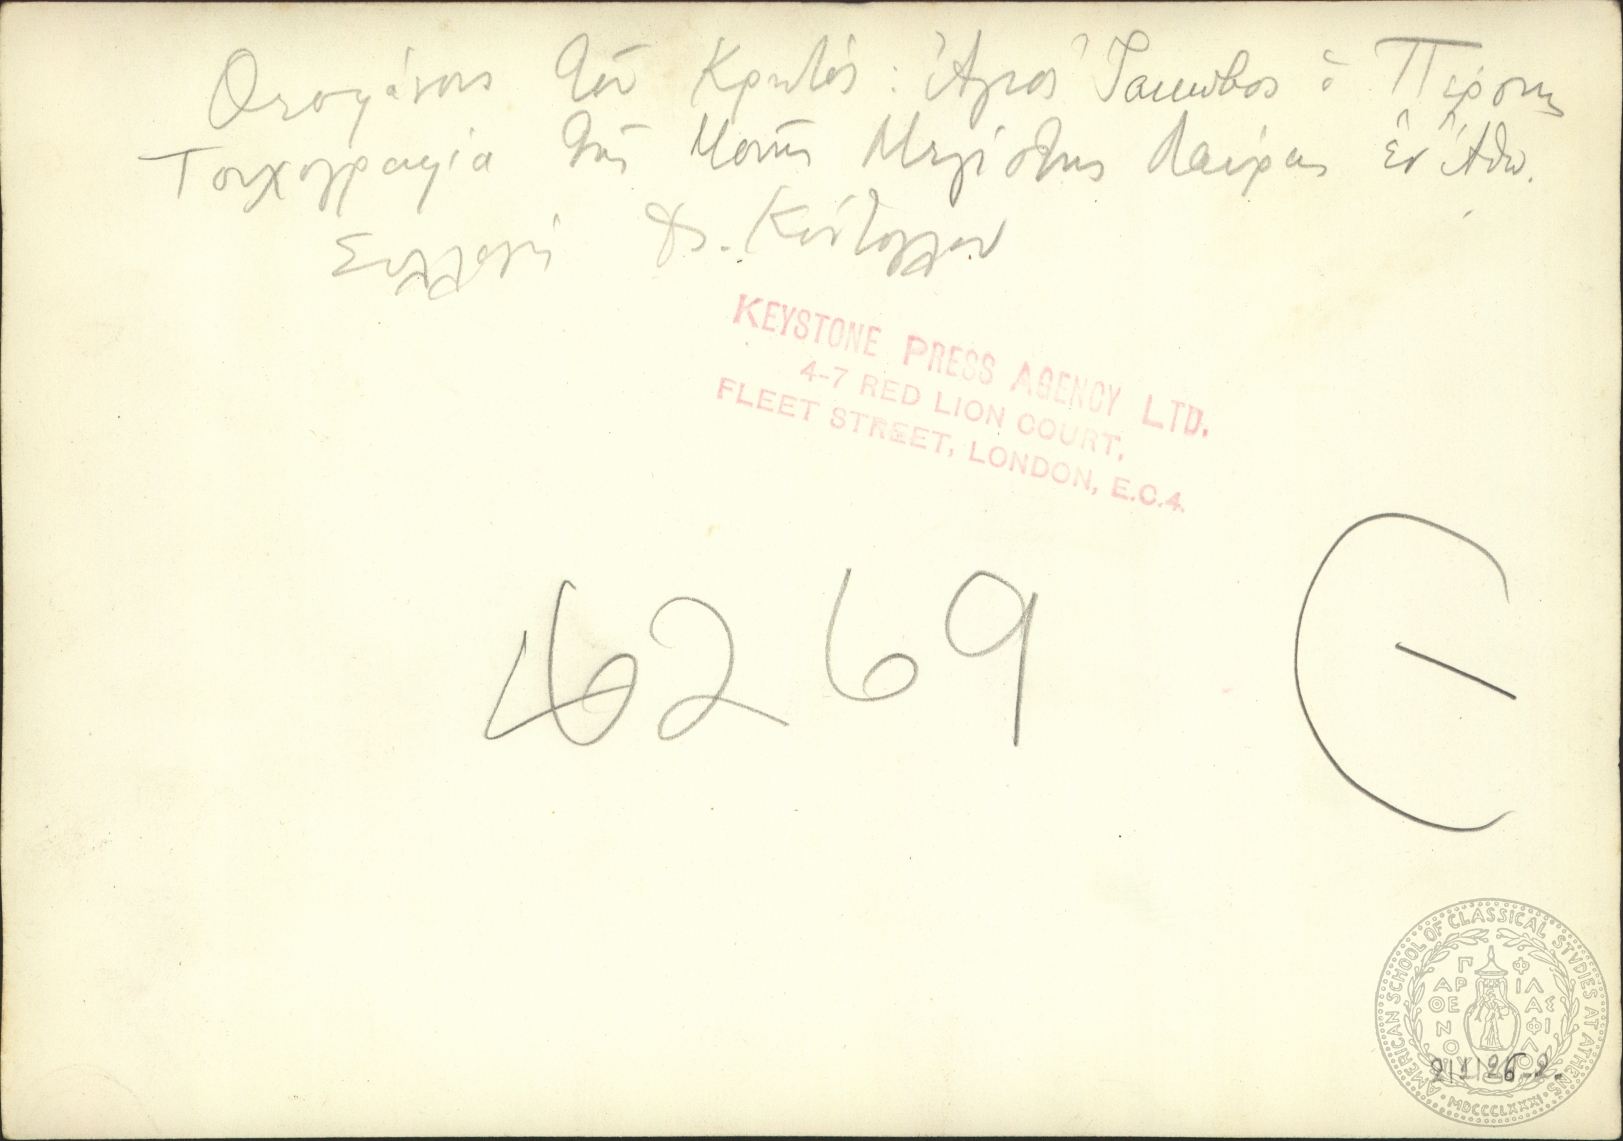 Θεοφάνους τοῦ Κρητός: Ἅγιος Ἰάκωβος ὁ Πέρσης
Τοιχογραφία τῆς Μονῆς Μεγίστης Λαύρας ἐν Ἄθῳ.
Συλλογή Φ. Κόντογλου
KEYSTONE PRESS AGENCY LTD.
4-7 RED LION COURT,
FLEET STREET, LONDON, E.C.4.
6269
AMERICAN SCHOOL OF CLASSICAL STUDIES AT ATHENS
ΠΑΡΘΕΝΟΥ ΦΙΛΑΣ ΦΙΛΟΥ
MDCCCLXXXI